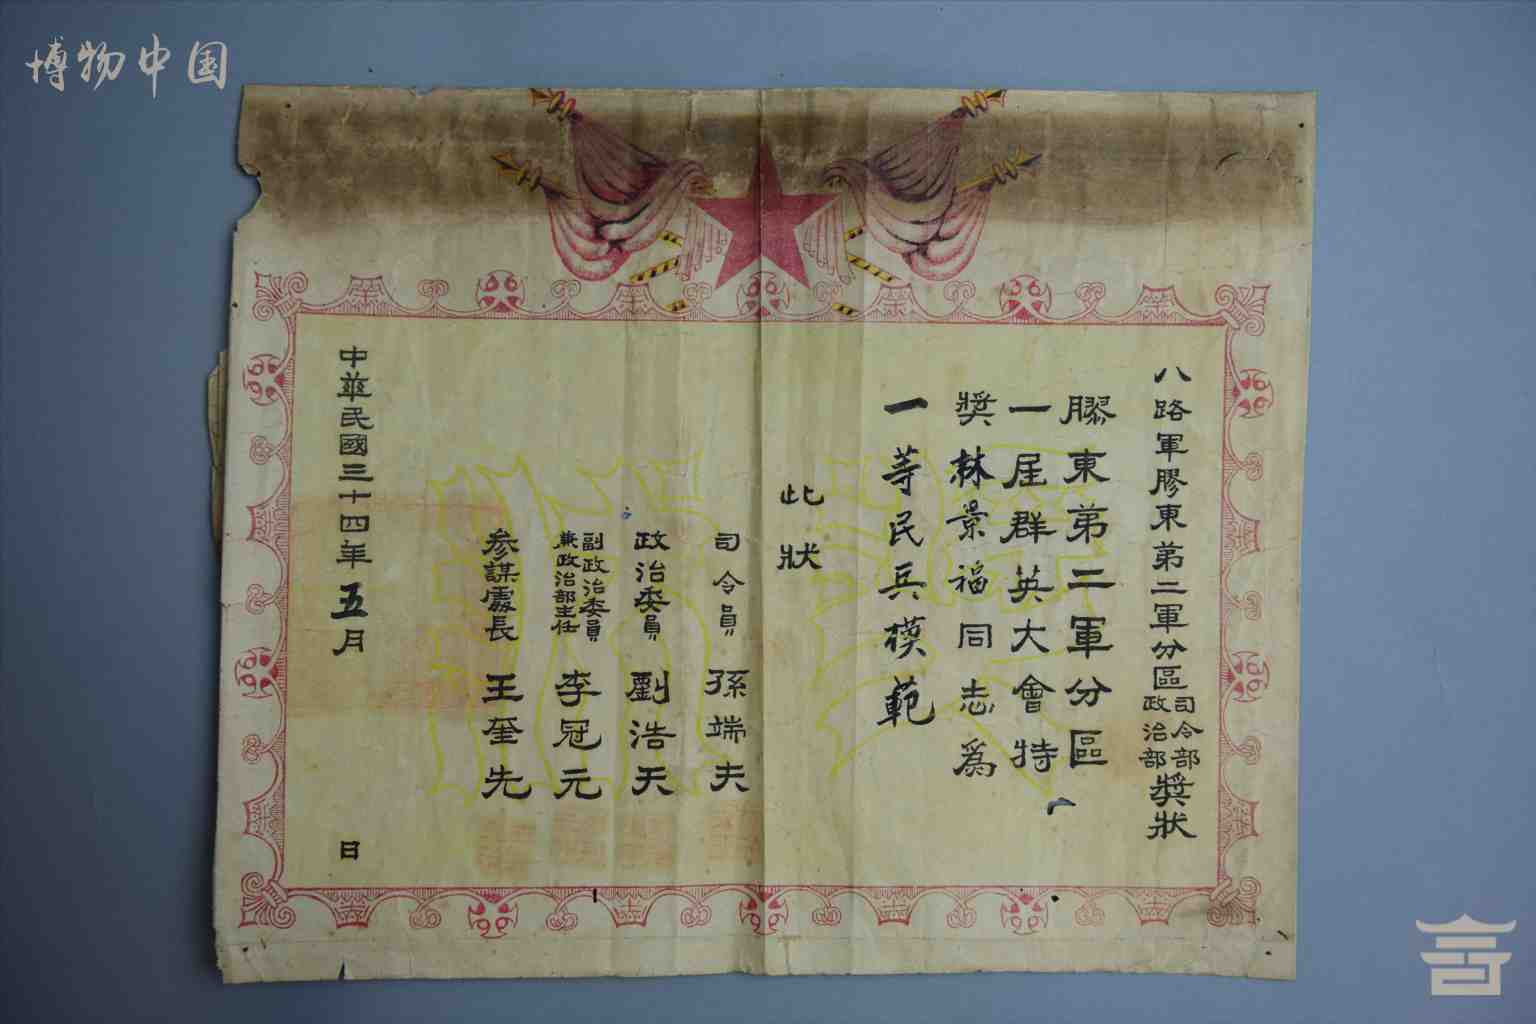 博物中国
八路軍膠東第二軍分區司令部政治部獎狀
膠東第二軍分區
一屆群英大會特
獎林景福同志爲
一等民兵模範
此狀
司令員 孫端夫
政治委員 劉浩天
副政治委員兼政治部主任 李冠元
參謀處長 王奎先
中華民國三十四年五月 日